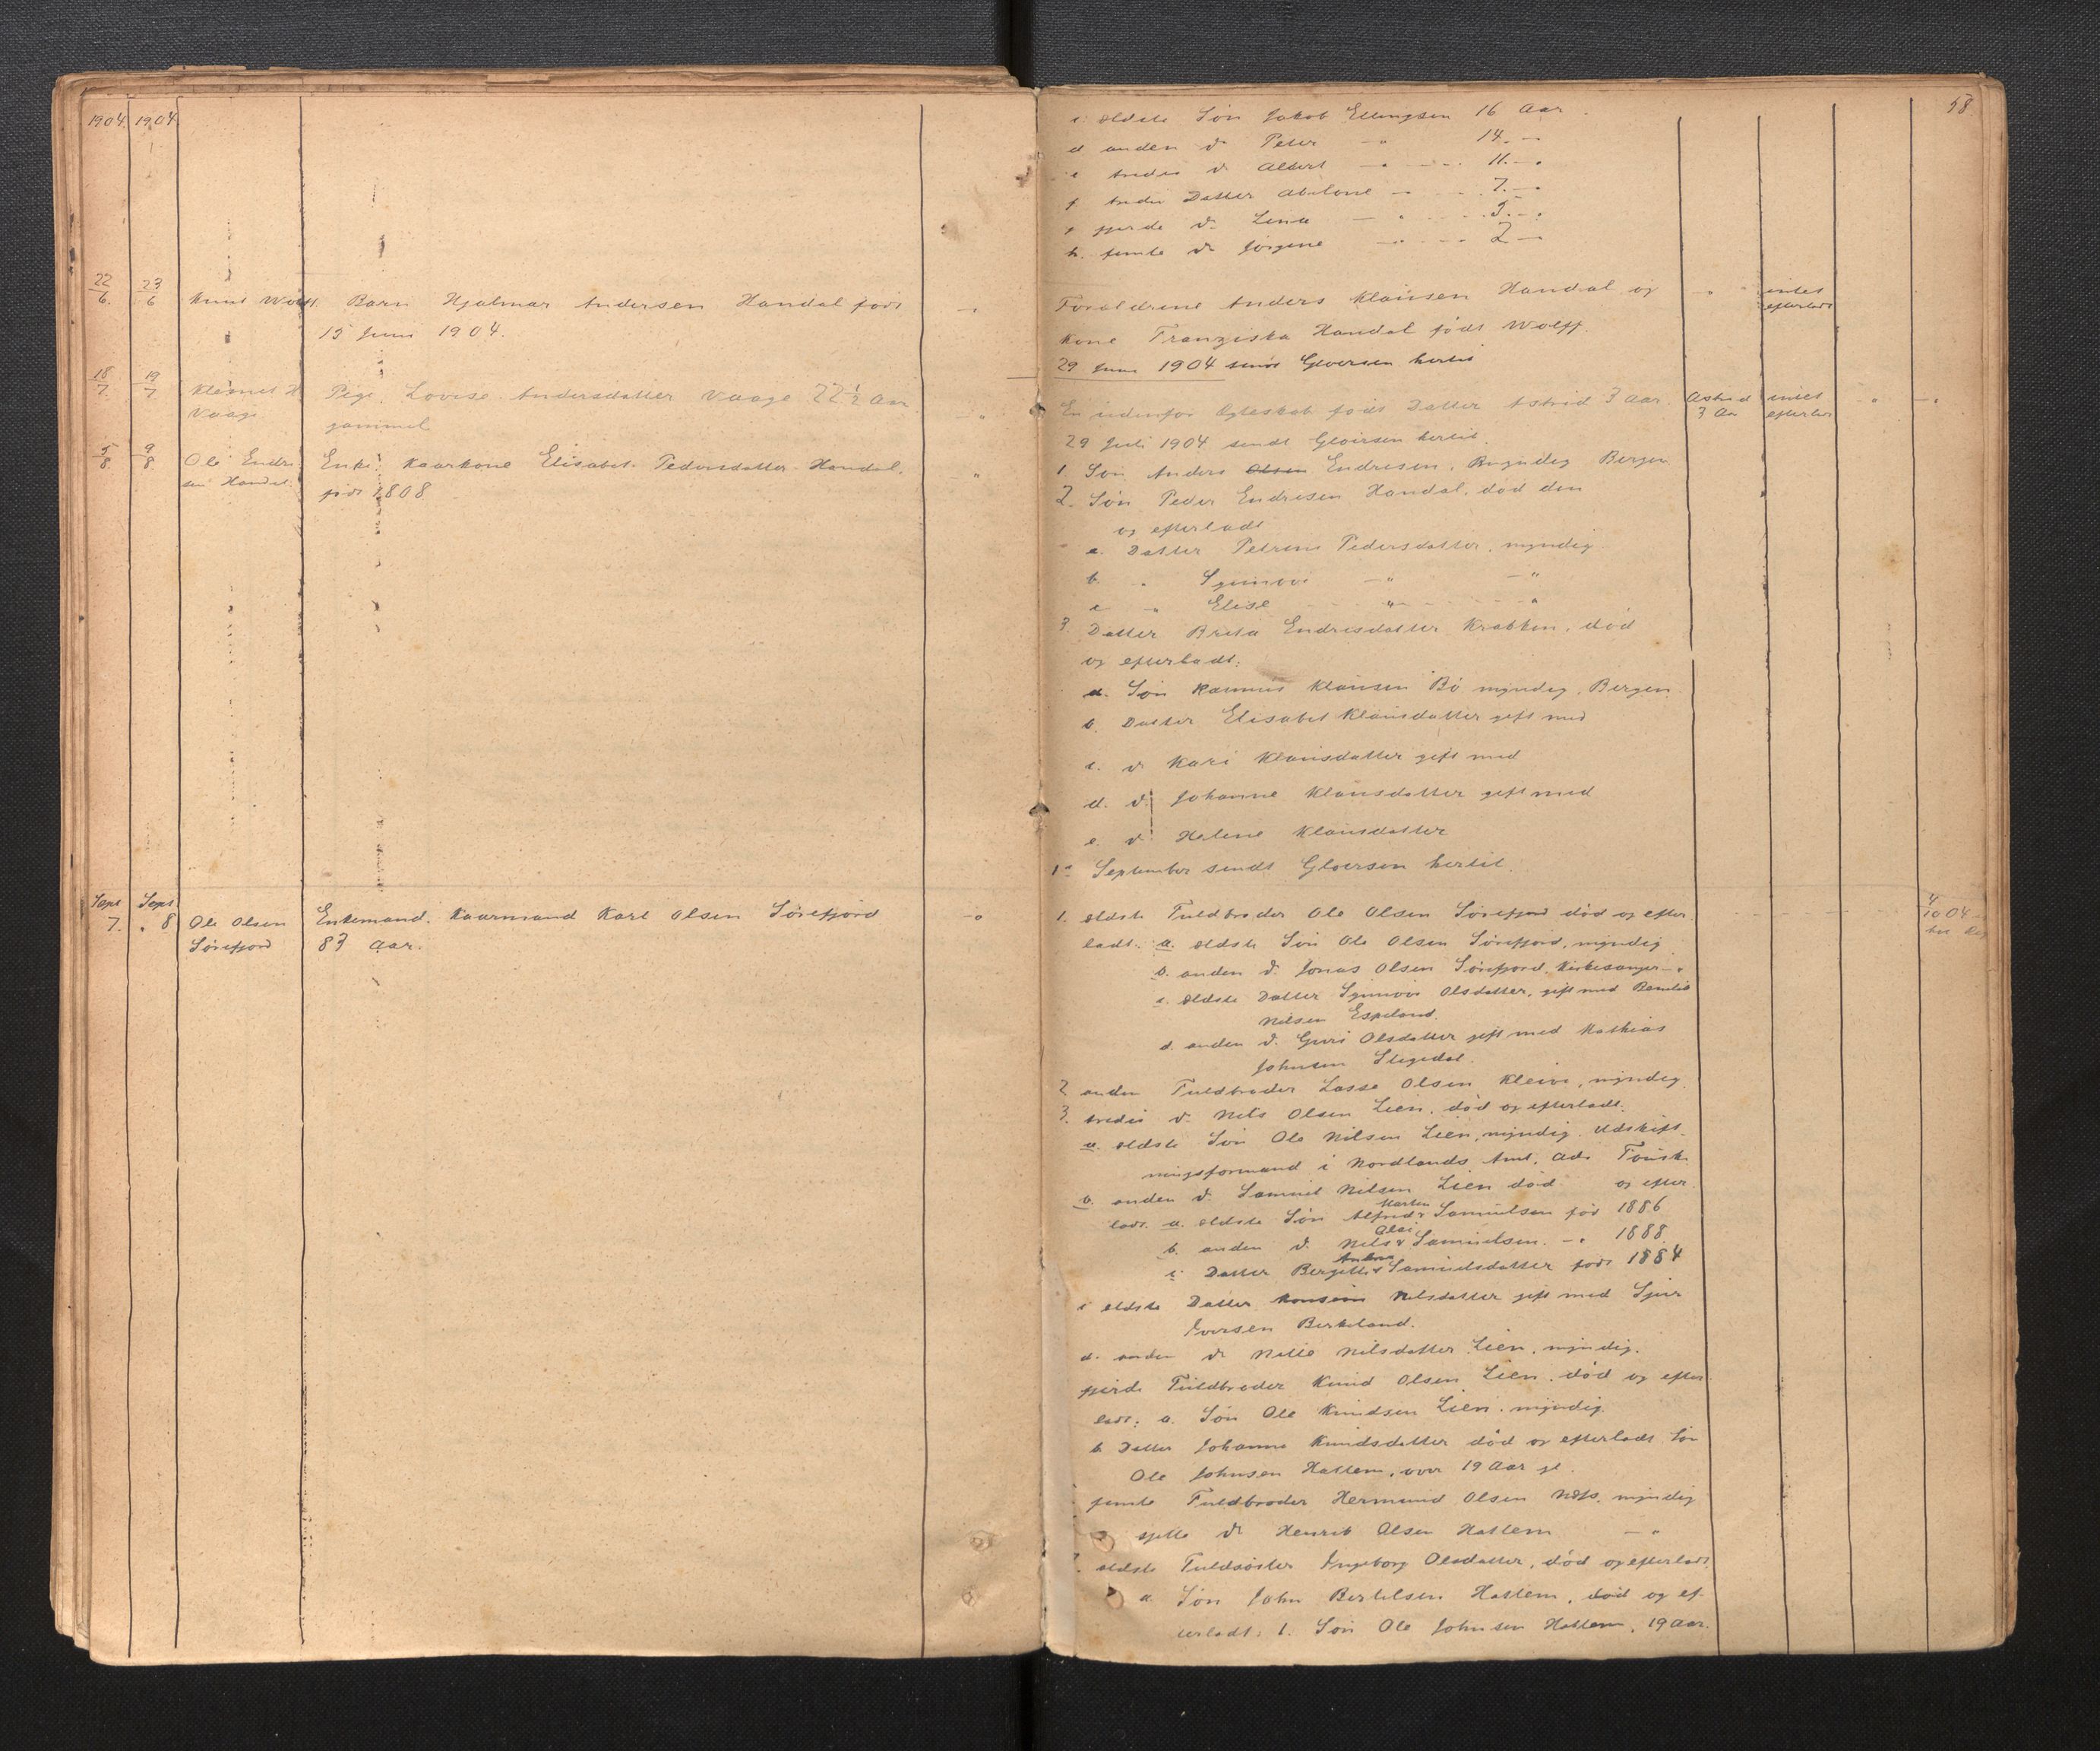 1904. 1904
22/6. 23/6 Knut Wolff. Barn Hjalmar Andersen Handal født — "
15 Juni 1904.
18/7 19/7 Klemet H Pige. Lovise Andersdatter Vaage 22 1/2 Aar — "
Vaage gammel
5/8. 9/8. Ole Endre- Enke. Kaarkone Elisabet Pedersdatter Handal. "
sen Handal. født 1808.
Sept Sept
7. " 8 Ole Olsen Enkemand. Kaarmand Karl Olsen Sörefjord — "
Sörefjord 83 Aar.
58
c. ældste Sön Jakob Ellingsen 16 Aar
d anden d. Peter — " 14. —
e tredie d. Albert — " — 11. — "
f. tredie Datter Abelone — 7. — "
g fjerde d. Lina — " 5. — "
h. femte d. Jörgine — " 2 —
Forældrene Anders Klausen Handal og " intet
efterladt
Kone Franziska Handal födt Wolff.
29 Juni 1904 sendt Gloersen hertil
En udenfor Ægteskab födt Datter Astrid 3 Aar. Astrid intet — " — "
3 Aar efterladt
29 Juli 1904 sendt Gloersen hertil.
1. Sön Anders Olsen Endresen, Bergen
2. Sön Peder Endresen Handal, död den
og efterladt
a. Datter Petrine Pedersdatter, myndig
b. " Synnove — " — "
c " Elise " "
3. Datter Brita Endresdatter Krakken, död
og efterladt:
a. Sön Rasmus Klausen Bö myndig, Bergen.
b. Datter Elisabet Klausdatter gift med
c. d. Kari Klausdatter gift med
d. d. Johanne Klausdatter gift med
e. d. Helene Klausdatter
1ste September sendt Gloersen hertil.
1. ældste Fuldbroder Ole Olsen Sörefjord död og efter- 4/10 04
ladt: a. ældste Sön Ole Olsen Sörefjord, myndig
b. anden d. Jonas Olsen Sörefjord, Kirkesanger — "
c. ældste Datter Synnove Olsdatter, gift med
Nilsen Espeland.
d. anden d. Guri Olsdatter gift med Mathias
Johnsen Stegedal.
2 anden Fuldbroder Lasse Olsen Kleive, myndig.
3. tredie d. Nils Olsen Lien, död og efterladt:
a. ældste Sön Ole Nilsen Lien, myndig. Udskift-
ningsformand i Nordlands Amt, Adr.
b. anden d. Samuel Nilsen Lien död og efter-
ladt. a. ældste Sön Alfred Martin Samuelsen föd 1886
b. anden d. Nils Olai Samuelsen — " 1888.
c. Datter Bergitte Samuelsdatter födt 1884
c ældste Datter Nilsdatter gift med Sjur
Iversen Birkeland.
d. anden d. Nille Nilsdatter Lien, myndig.
fjerde Fuldbroder Knud Olsen Lien, död og efter-
ladt: a. Sön Ole Knudsen Lien, myndig.
b. Datter Johanne Knudsdatter död og efterladt Sön
Ole Johnsen Hatlem, over 19 Aar gl.
femte Fuldbroder Hermund Olsen Næs, myndig
sjette d. Henrik Olsen Hatlem — "
ældste Fuldsöster Ingeborg Olsdatter, död og efterladt
a. Sön John Bertelsen Hatlem, död og ef-
terladt: 1. Sön Ole Johnsen Hatlem, 19 Aar.